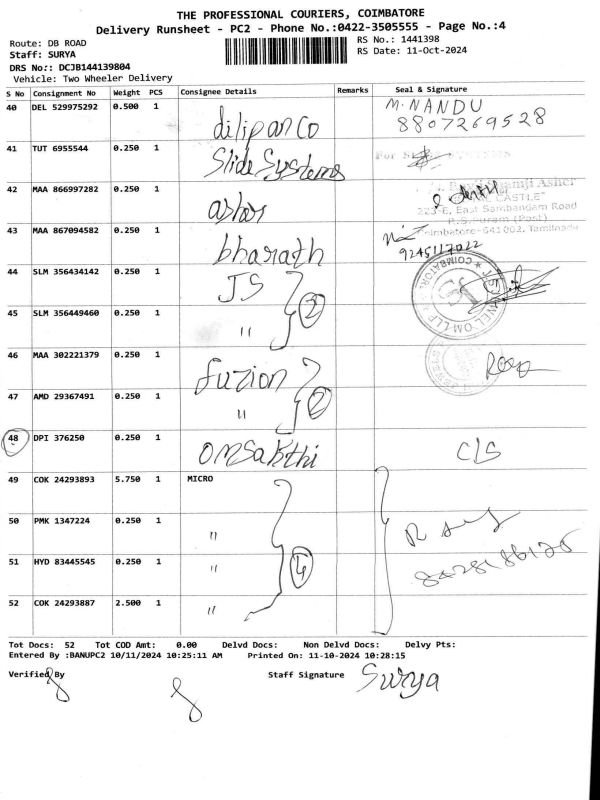 THE PROFESSIONAL COURIERS, COIMBATORE
Delivery Runsheet - PC2 - Phone No.:0422-3505555 - Page No.:4
Route: DB ROAD RS No.: 1441398
Staff: SURYA RS Date: 11-Oct-2024
DRS No:: DCJB144139804
Vehicle: Two Wheeler Delivery
S No Consignment No Weight PCS Consignee Details Remarks Seal & Signature
40 DEL 529975292 0.500 1 dilipanco M. NANDU
8807269528
41 TUT 6955544 0.250 1 Slide Systems For
42 MAA 866997282 0.250 1 ashar Asher
CASTLE"
223-E, East Sambandam Road
(Post)
43 MAA 867094582 0.250 1 bharath Coimbatore-641 002. Tamilnadu
9245117022
44 SLM 356434142 0.250 1 JS 2
45 SLM 356449460 0.250 1 "
46 MAA 302221379 0.250 1 fuzion 2
47 AMD 29367491 0.250 1 "
48 DPI 376250 0.250 1 omsakthi CLS
49 COK 24293893 5.750 1 MICRO 4
50 PMK 1347224 0.250 1 "
51 HYD 83445545 0.250 1 "
52 COK 24293887 2.500 1 "
Tot Docs: 52 Tot COD Amt: 0.00 Delvd Docs: Non Delvd Docs: Delvy Pts:
Entered By :BANUPC2 10/11/2024 10:25:11 AM Printed On: 11-10-2024 10:28:15
Verified By Staff Signature Surya